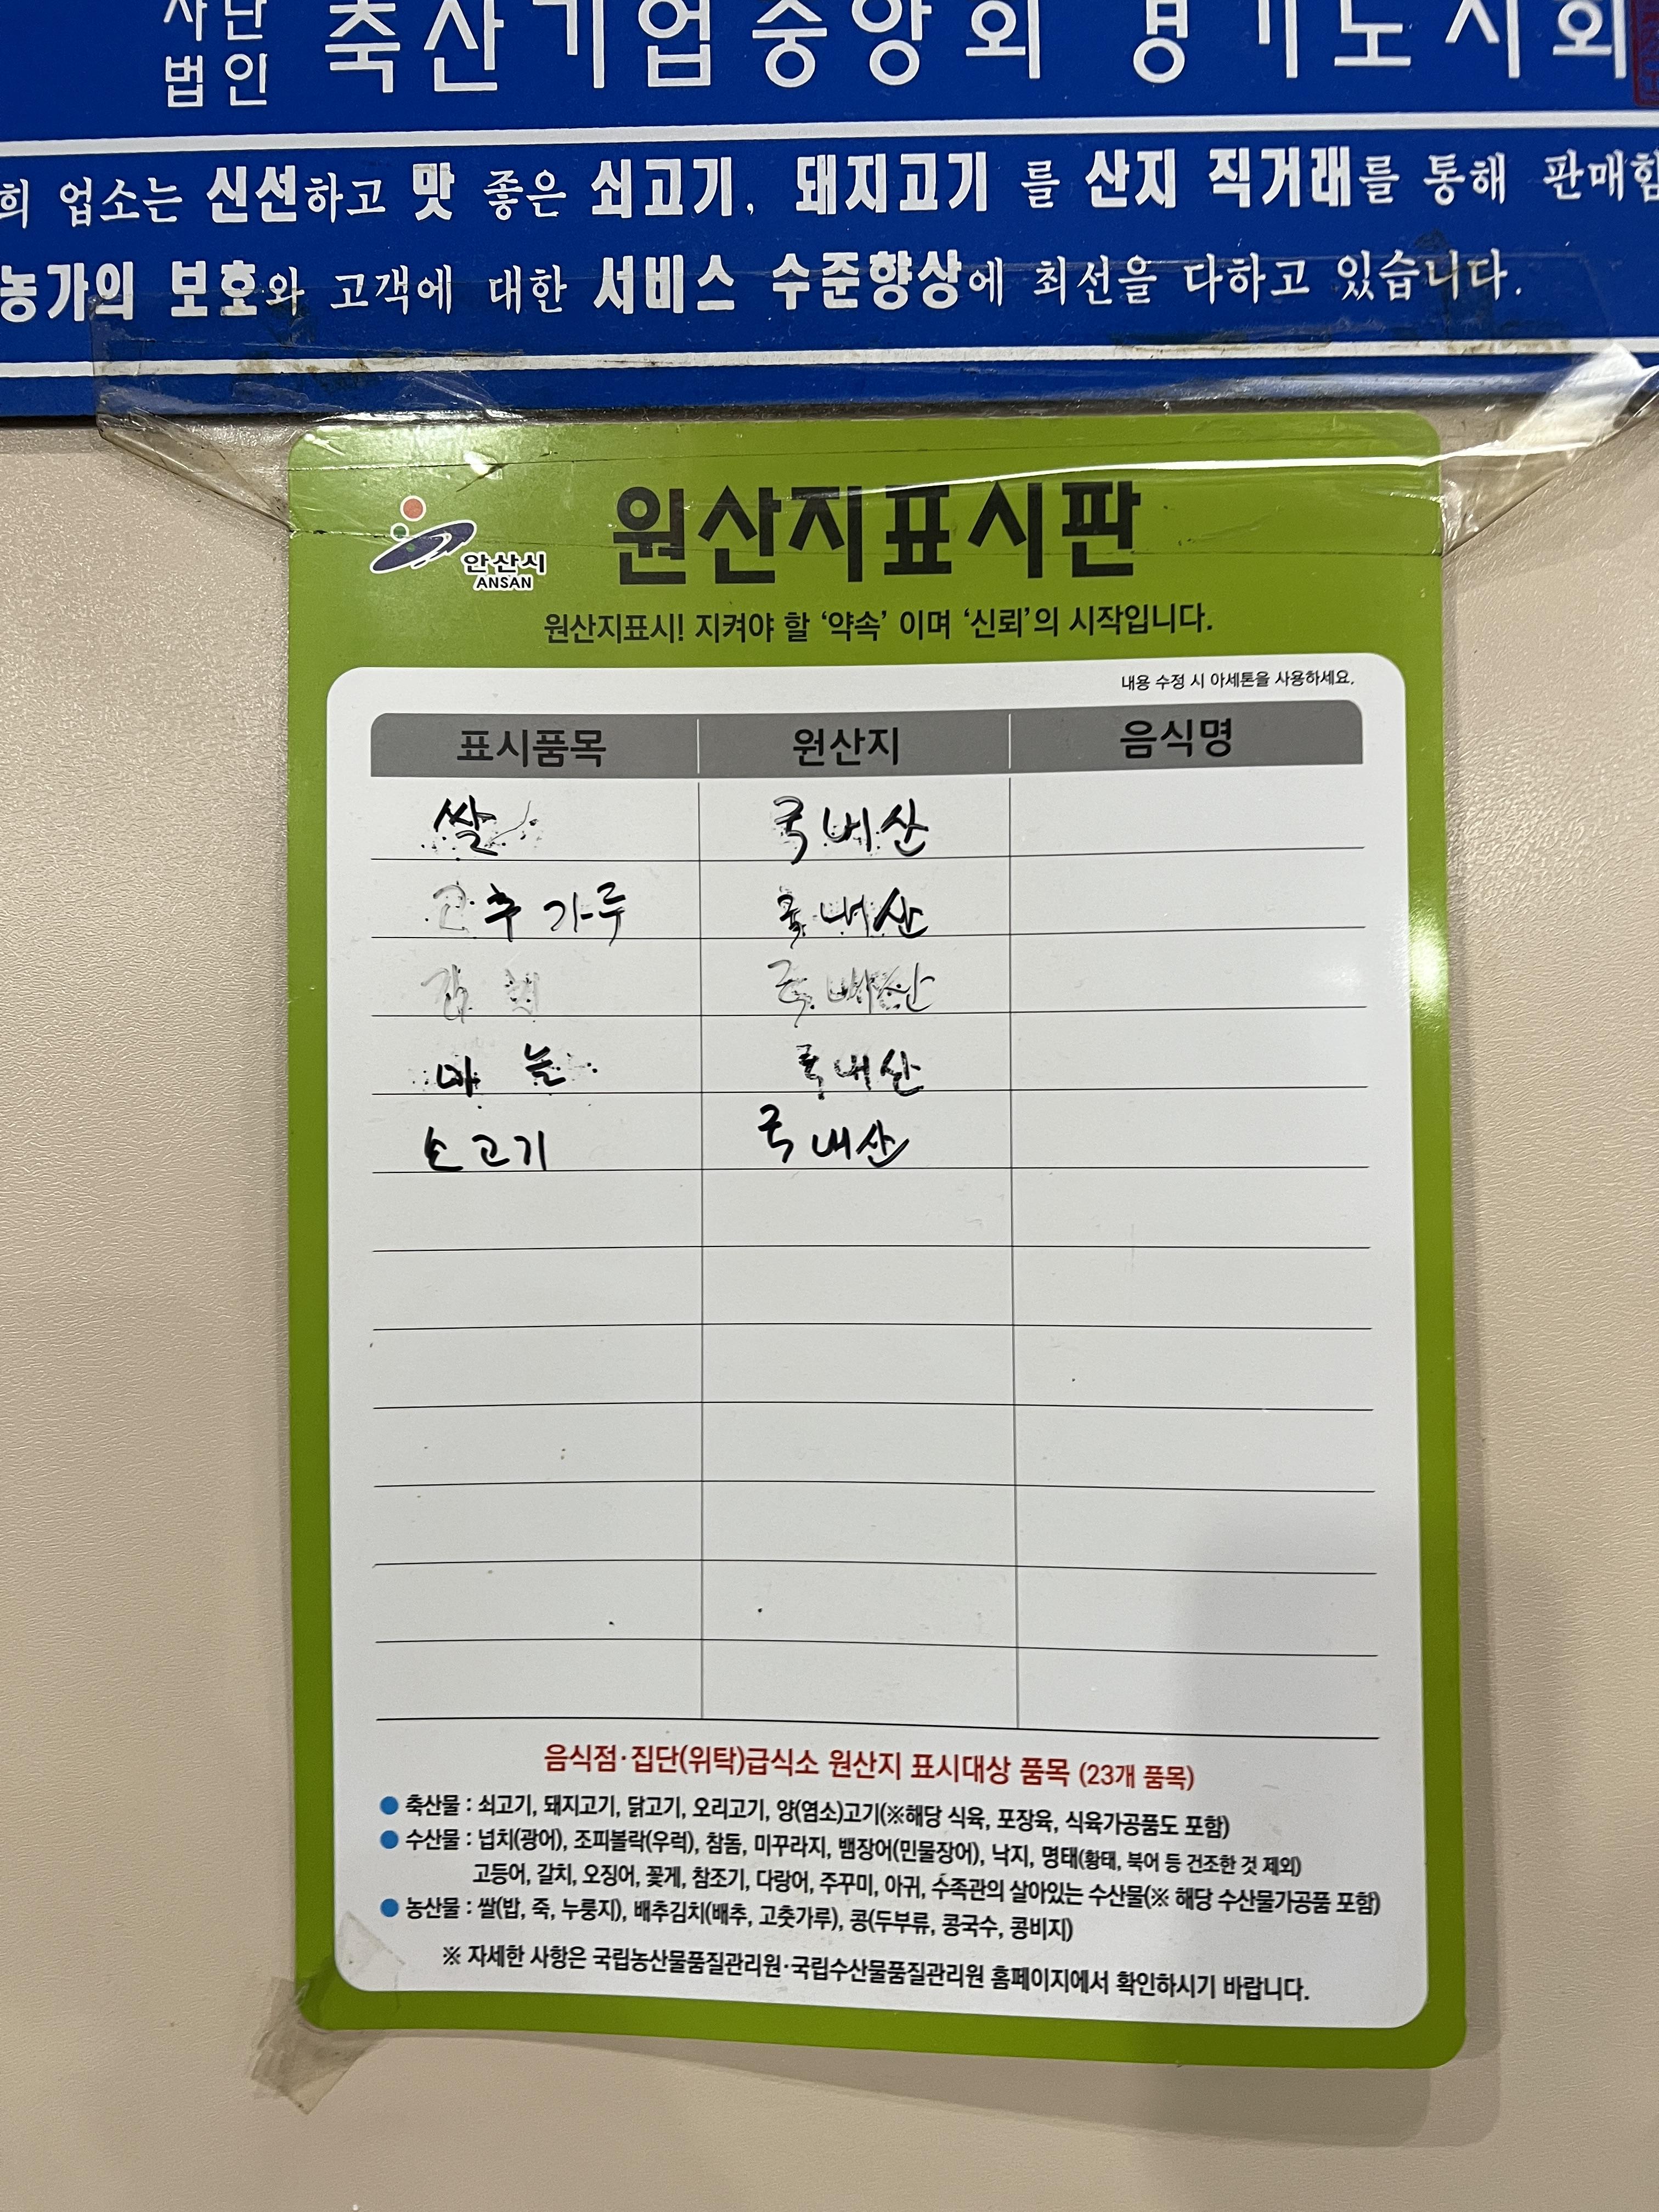 사단
법인
축산기업중앙회 경기도지회
희 업소는 신선하고 맛 좋은 쇠고기, 돼지고기 를 산지 직거래를 통해 판매함
농가의 보호와 고객에 대한 서비스 수준향상에 최선을 다하고 있습니다.
안산시
ANSAN
원산지표시판
원산지표시! 지켜야 할 ‘약속’ 이며 ‘신뢰’의 시작입니다.
내용 수정 시 아세톤을 사용하세요.
표시품목 원산지 음식명
쌀 국내산
고추가루 국내산
김치 국내산
마늘 국내산
소고기 국내산
음식점·집단(위탁)급식소 원산지 표시대상 품목 (23개 품목)
● 축산물 : 쇠고기, 돼지고기, 닭고기, 오리고기, 양(염소)고기(※해당 식육, 포장육, 식육가공품도 포함)
● 수산물 : 넙치(광어), 조피볼락(우럭), 참돔, 미꾸라지, 뱀장어(민물장어), 낙지, 명태(황태, 북어 등 건조한 것 제외)
고등어, 갈치, 오징어, 꽃게, 참조기, 다랑어, 주꾸미, 아귀, 수족관의 살아있는 수산물(※ 해당 수산물가공품 포함)
● 농산물 : 쌀(밥, 죽, 누룽지), 배추김치(배추, 고춧가루), 콩(두부류, 콩국수, 콩비지)
※ 자세한 사항은 국립농산물품질관리원·국립수산물품질관리원 홈페이지에서 확인하시기 바랍니다.